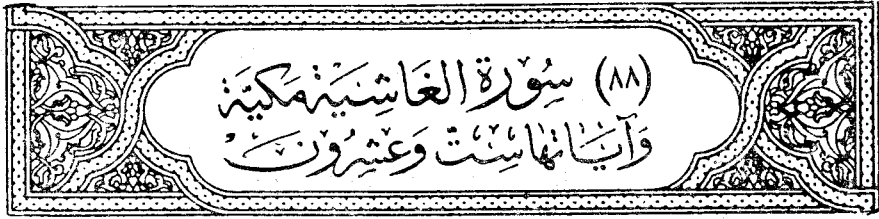 (٨٨) سُورَة الغَاشِيَة مَكيَّة
وَآيَاتهَا سِتّ وَعَشِرُونَ